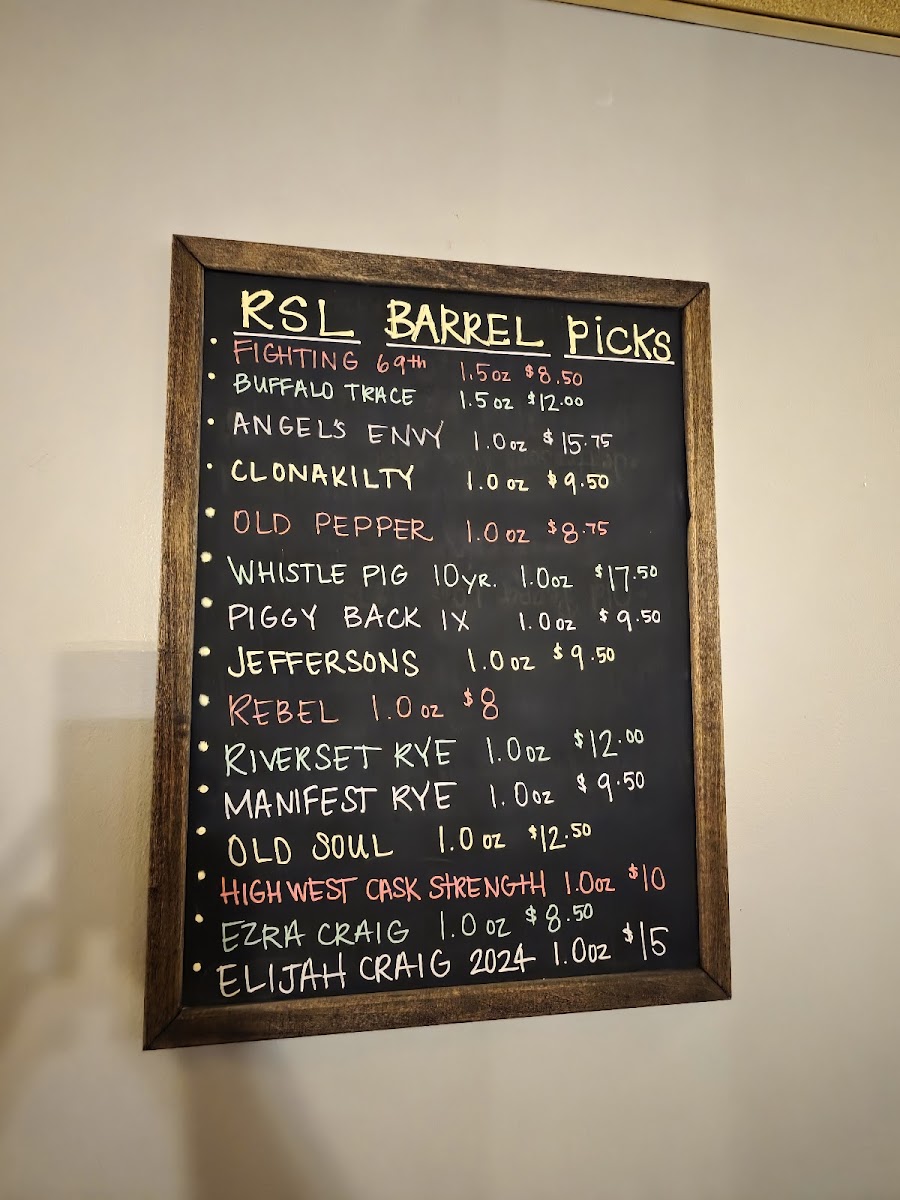 RSL BARREL PiCKS
• FIGHTING 69th 1.5oz $8.50
• BUFFALO TRACE 1.5 oz $12.00
• ANGEL'S ENVY 1.0oz $15.75
• CLONAKILTY 1.0 oz $9.50
• OLD PEPPER 1.0 oz $8.75
• WHISTLE PIG 10YR. 1.0oz $17.50
• PIGGY BACK 1X 1.0oz $9.50
• JEFFERSONS 1.0oz $9.50
• REBEL 1.0 oz $8
• RIVERSET RYE 1.0oz $12.00
• MANIFEST RYE 1.0oz $9.50
• OLD SOUL 1.0 oz $12.50
• HIGH WEST CASK STRENGTH 1.0oz $10
• EZRA CRAIG 1.0 oz $8.50
• ELIJAH CRAIG 2024 1.0oz $15